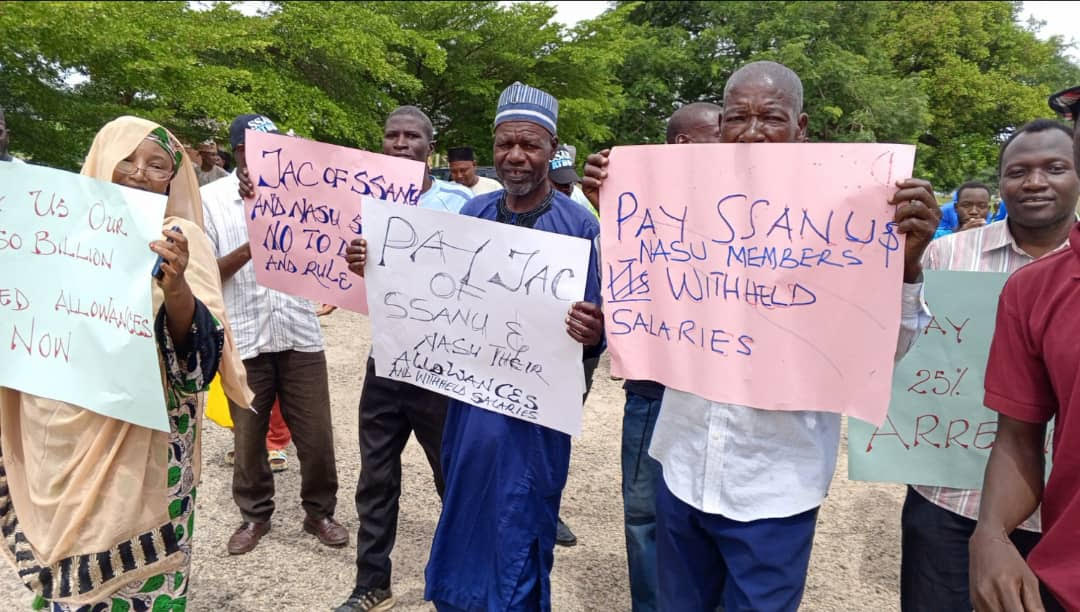 Us Our
50 Billion
ED ALLOWANCES
NOW
JAC OF SSANU
AND NASU S
NO TO D
AND RULE
PAY JAC
OF
SSANU &
NASU THEIR
ALLOWANCES
AND WITHHELD SALARIES
PAY SSANU $
NASU MEMBERS
WITHHELD
SALARIES
PAY
25%
ARRE